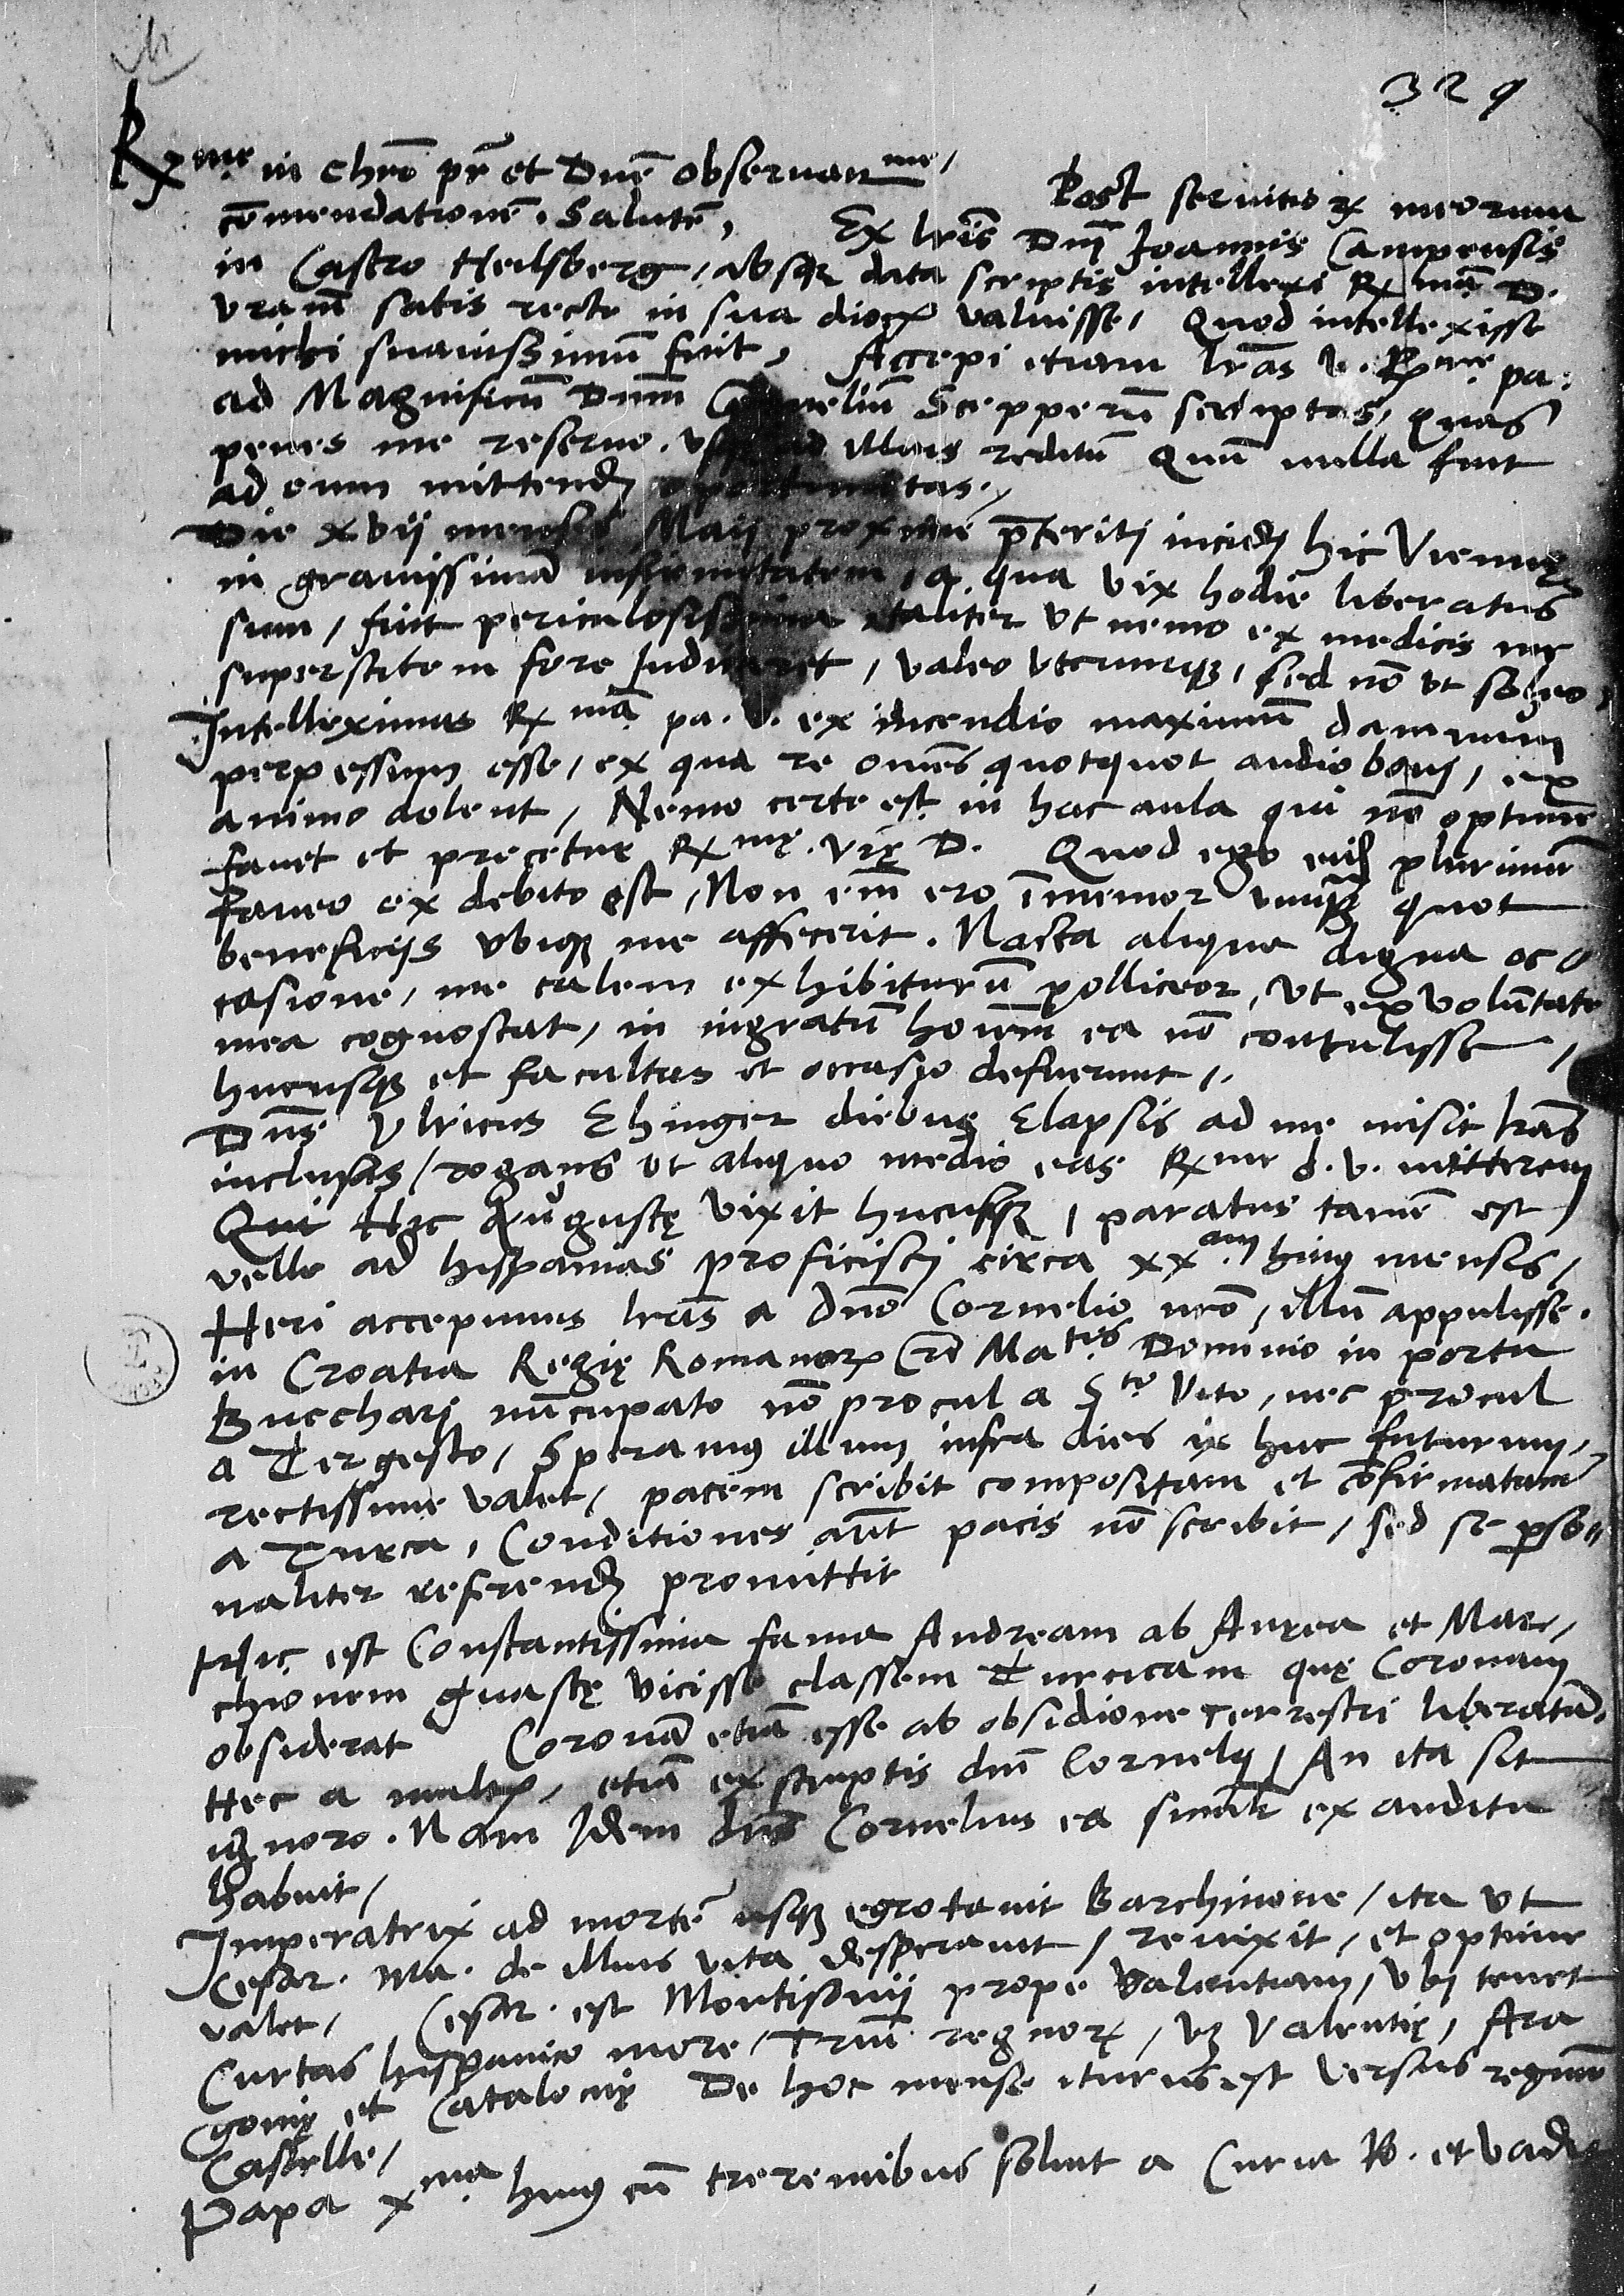 329
Rxme in Chro pr̃ et Dnẽ obseruanme,
Post seruitiorum meorum
cõmendationẽ. Salutẽ, Ex lr̃is Dnj Joannis Campensis
in Castro Heilsberg, absque data scriptis intellexi Rxmã D.
vrãm satis recte in sua dioc. valuisse, Quod intellexisse
michi suauissimũ fuit, Accepi etiam lr̃as v. Rxme pa:
ad Magnificũ Dnm Cornelium Scepperũ scriptas, quas
penes me reseruo. vsque ad illius reditũ Quũ nulla fuit
ad eum mittendj oportunitas.
Die xvij mensis Maij proxime p̃teritj incidj hic Viennę
in grauissimã infirmitatem, a qua vix hodie liberatus
sum, fuit periculosissima taliter vt nemo ex medicis me
superstitem fore Iudicaret, valeo vtcumque, sed nõ vt soleo,
Intelleximus Rxmã pa. v. ex incendio maximũ damnum
perpessum esse, ex qua re omẽs quotquot audio bonj, ex
animo dolent, Nemo certe est in hac aula qui nõ optime
fauet et precetur Rxmę. vrę D. Quod ego eid plurimũ
faueo ex debito est, Non em̃ ero ĩmemor vnquã quot
beneficijs vbique me affecerit. Nacta aliqua digna oc
casione, me talem exhibiturũ polliceor, vt ex voluntate
mea cognoscat, in ingratũ hom̃em ea nõ contulisse,
hucusque et facultas et occasio defuerunt,.
Dns̃ Vlricus Ehinger diebus Elapsis ad me misit lr̃as
inclusas, rogans vt aliquo medio eas Rxme d. v. mitterem
Qui Hic Augustę vixit hucusque, paratus tamẽ est
velle ad hispanias proficiscj circa xxam huius mensis,
Heri accepimus lr̃as a Dnõ Cornelio nr̃o, illũ appulisse.
in Croatia Regię Romanorum Cr̃e Matis Dominio in portu
Bucchari nũcupato nõ procul a Sto Vito, nec procul
a Tergesto, Speramus illum infra dies ix huc futurum,
rectissime valet, pacem scribit compositam et cõfirmatam
a Turca, Conditiones aũt pacis nõ scribit, sed se p̱so
naliter referendj promittit
Hic est Constantissima fama Andream ab Aurea et Mar,
chionem guastę vicisse classem Turcicam quę Coronam
obsiderat Coronã etiã esse ab obsidione terrestri liberatã.
Hec a multis, etiã ex scriptis dnj Cornelij, An ita sit
ignoro. Nam Idem dns̃ Cornelius ea simĩlr ex auditu
habuit,
Imperatrix ad mortẽ vsque egrotauit Barchinone, ita vt
Cesar. Ma. de illius vita desperauit, reuixit, et optime
valet, Cesar. est Montisonij prope Valentiam, vbi tenet
Curtas hispanico more, Triũ regnorum, vz Valentię, Ara
gonię et Catalonię De hoc mense iturus est versus regnũ
Castelle,
Papa xma huius cũ treremibus soluit a Curia Ro. et vadit